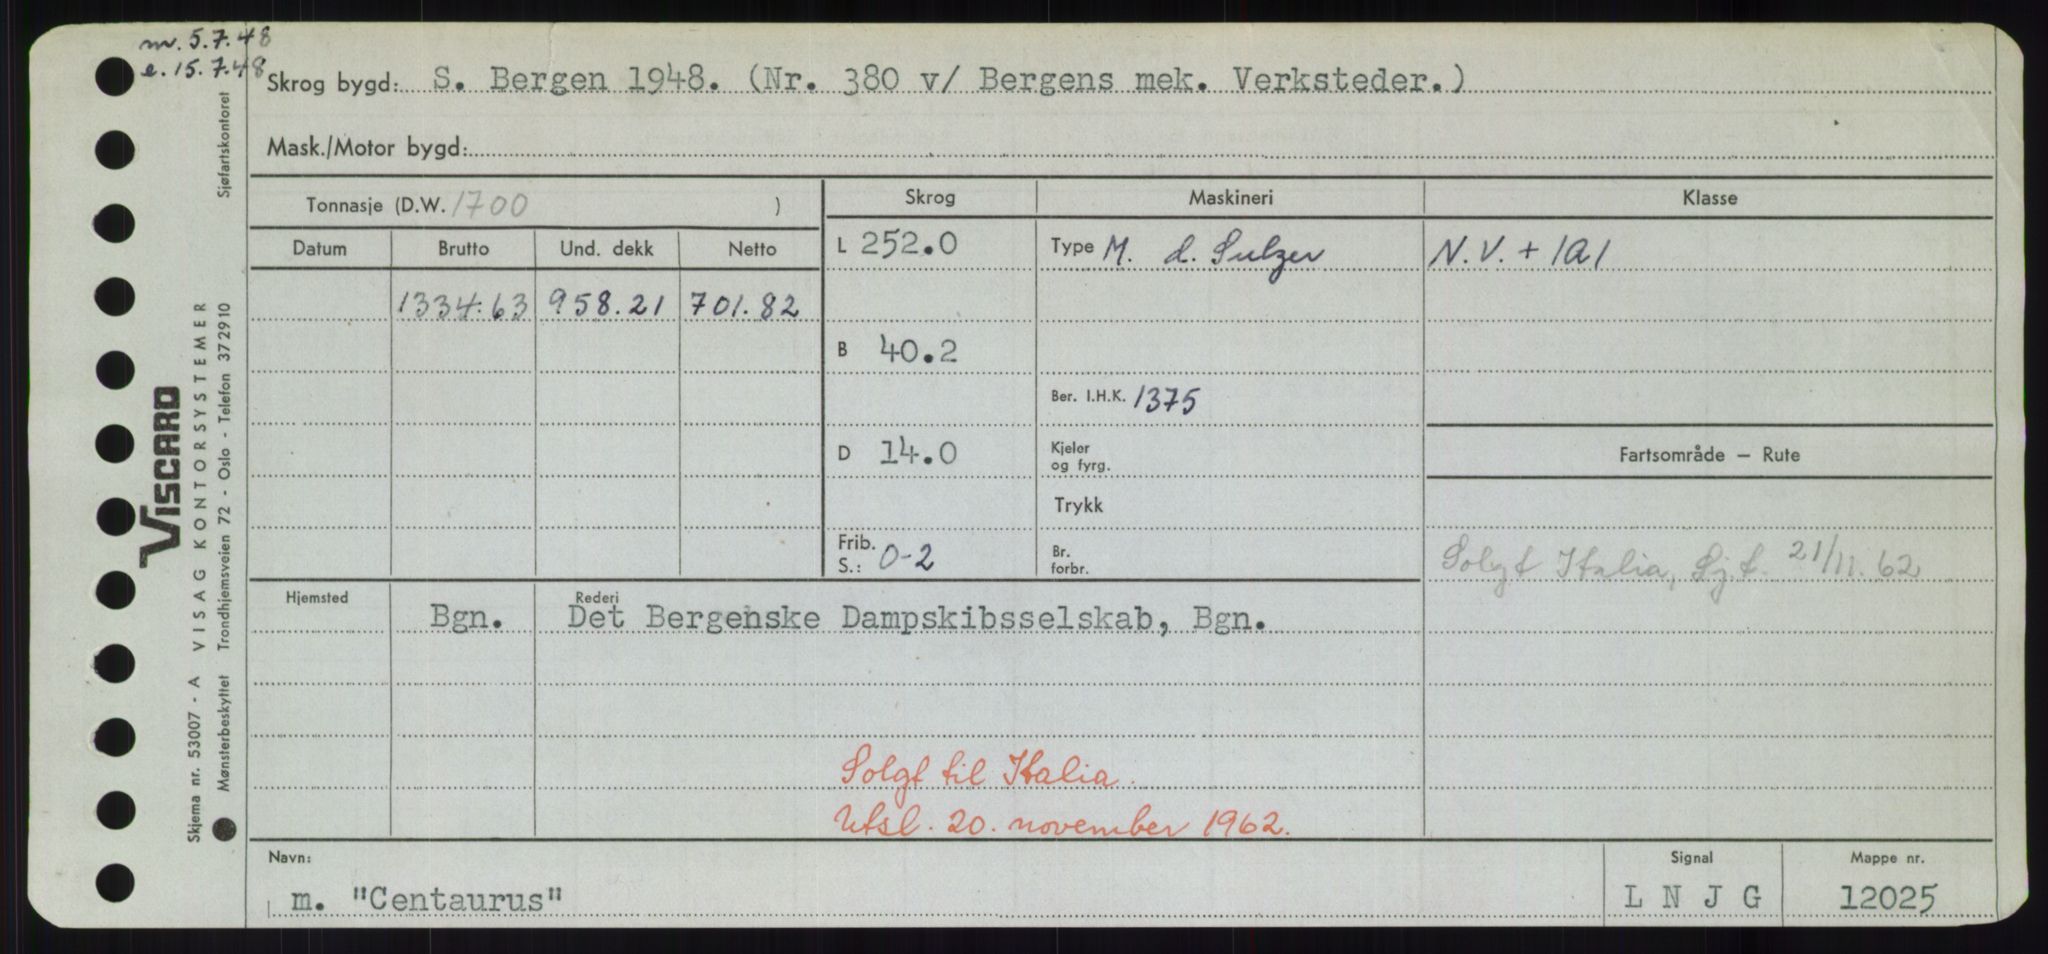 m. 5.7.48
e. 15.7.48
Skrog bygd: S. Bergen 1948. (Nr. 380 v/ Bergens mek. Verksteder.)
Mask./Motor bygd:
Tonnasje (D.W. 1700 )
Datum Brutto Und. dekk Netto
1334.63 958.21 701.82
Skrog Maskineri Klasse
L 252.0 Type M. d. Sulzer N.V. + 1A1
B 40.2
Ber. I.H.K. 1375
D 14.0 Kjeler og fyrg.
Fartsområde — Rute
Trykk
Frib. S.: 0-2 Br. forbr.
Solgt Italia, Sj.t. 21/11.62
Hjemsted Rederi
Bgn. Det Bergenske Dampskibsselskab, Bgn.
Solgt til Italia.
Utsl. 20. november 1962.
Navn: Signal Mappe nr.
m. "Centaurus" L N J G 12025
VISCARD
Skjema nr. 53007 - A VISAG KONTORSYSTEMER
Mønsterbeskyttet Trondhjemsveien 72 - Oslo - Telefon 372910 Sjøfartskontoret